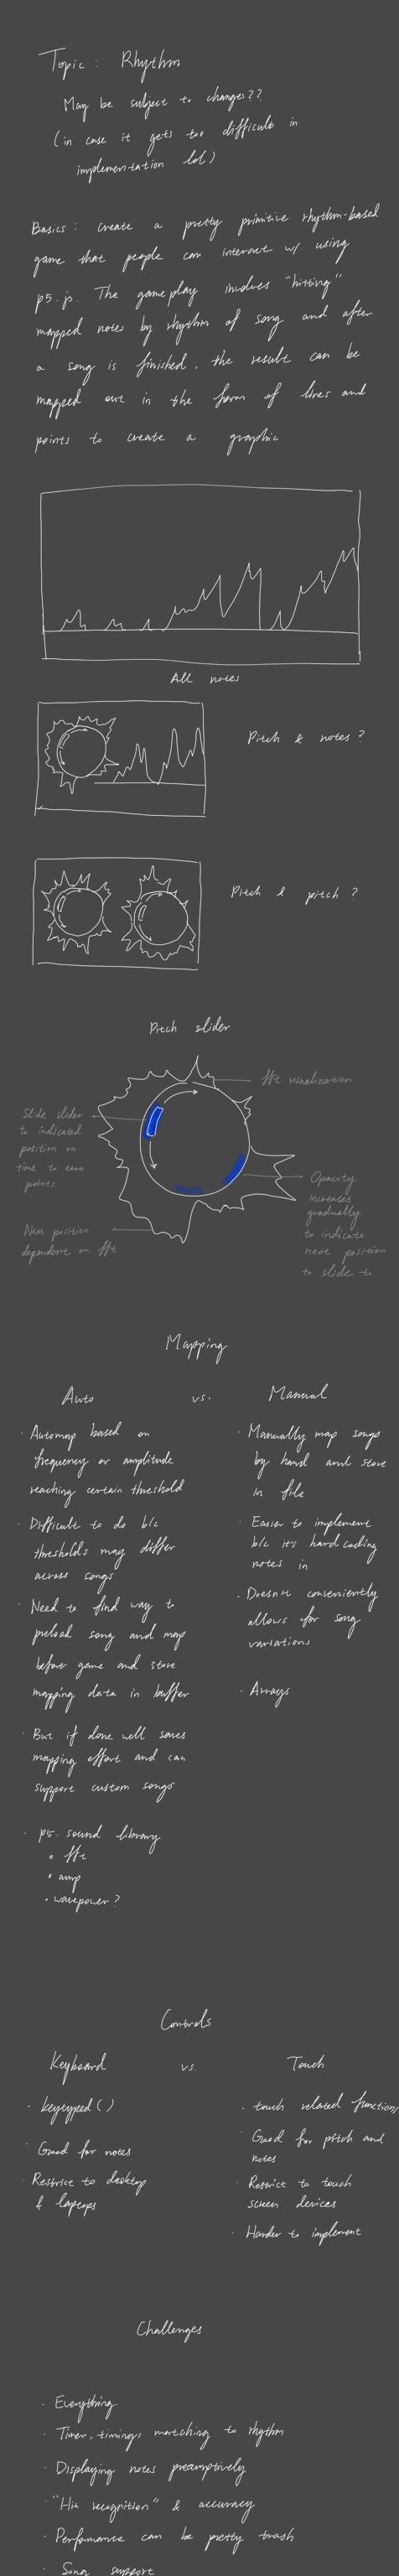 Topic: Rhythm
May be subject to changes??
(in case it gets too difficult in
implementation lol)
Basics: create a pretty primitive rhythm-based
game that people can interact w/ using
p5.js. The gameplay involves "hitting"
mapped notes by rhythm of song and after
a song is finished, the result can be
mapped out in the form of lines and
points to create a graphic
All notes
Pitch & notes?
Pitch & pitch?
Pitch slider
fft visualization
Slide slider
to indicated
position on
time to earn
points
Opacity
increases
gradually
to indicate
next position
to slide to
New position
dependent on fft
Mapping
Auto
vs.
Manual
· Automap based on
frequency or amplitude
reaching certain threshold
· Difficult to do b/c
thresholds may differ
across songs
· Need to find way to
preload song and map
before game and store
mapping data in buffer
· But if done well saves
mapping effort and can
support custom songs
· p5.sound library
• fft
• amp
• wavepower?
· Manually map songs
by hand and store
in file
· Easier to implement
b/c it's hard coding
notes in
· Doesn't conveniently
allows for song
variations
· Arrays
Controls
Keyboard
vs.
Touch
· keytyped()
· Good for notes
· Restrict to desktop
& laptops
· touch related functions
· Good for pitch and
notes
· Restrict to touch
screen devices
· Harder to implement
Challenges
· Everything.
· Timer, timing, matching to rhythm
· Displaying notes preemptively
· "Hit recognition" & accuracy
· Performance can be pretty trash
· Song support